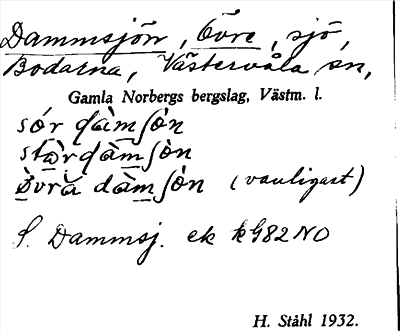 Dammsjön, Övre, sjö,
Bodarna, Västervåla sn,
Gamla Norbergs bergslag, Västm. l.
sór dàmʃòn
stòr dàmʃòn
òvrà dàmʃòn (vanligast)
S. Dammsj. ek kG82NO
H. Ståhl 1932.